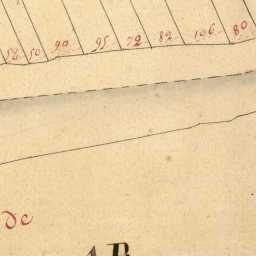 52 50 90 95 72 82 106 80
de
AB